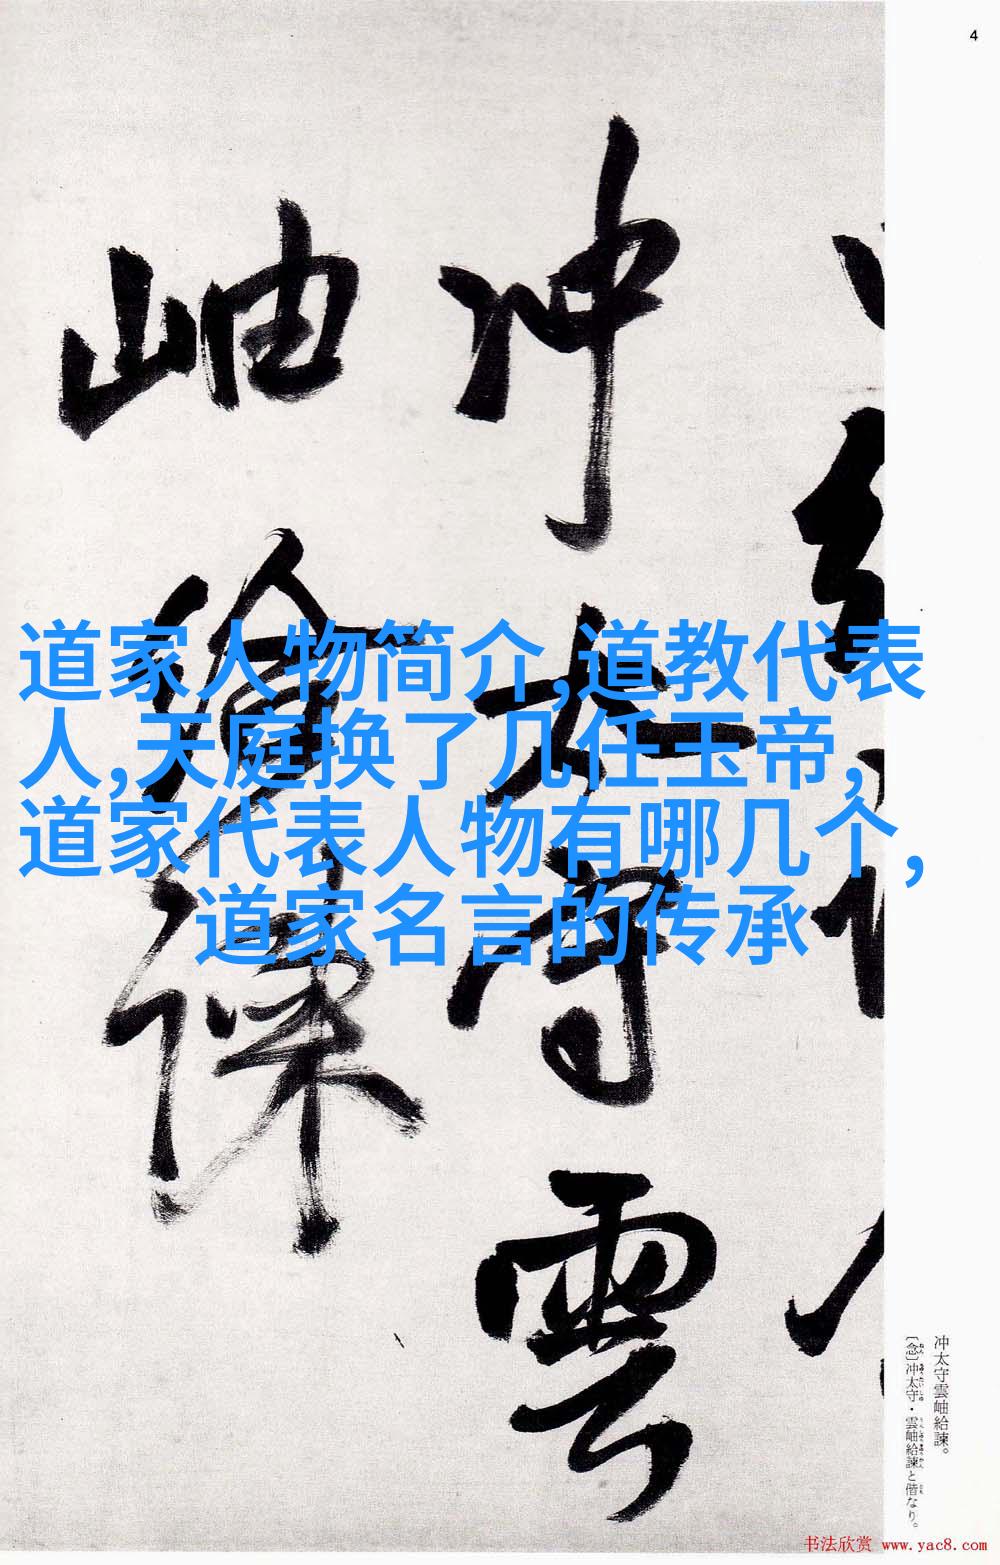 4
冲太守雲
岫給諫
道家人物简介,道教代表
人,天庭换了几任玉帝,
道家代表人物有哪几个,
道家名言的传承
冲太守雲岫給諫。
〔念〕冲太守・雲岫給諫と偕なり。
书法欣赏 www.yac8.com